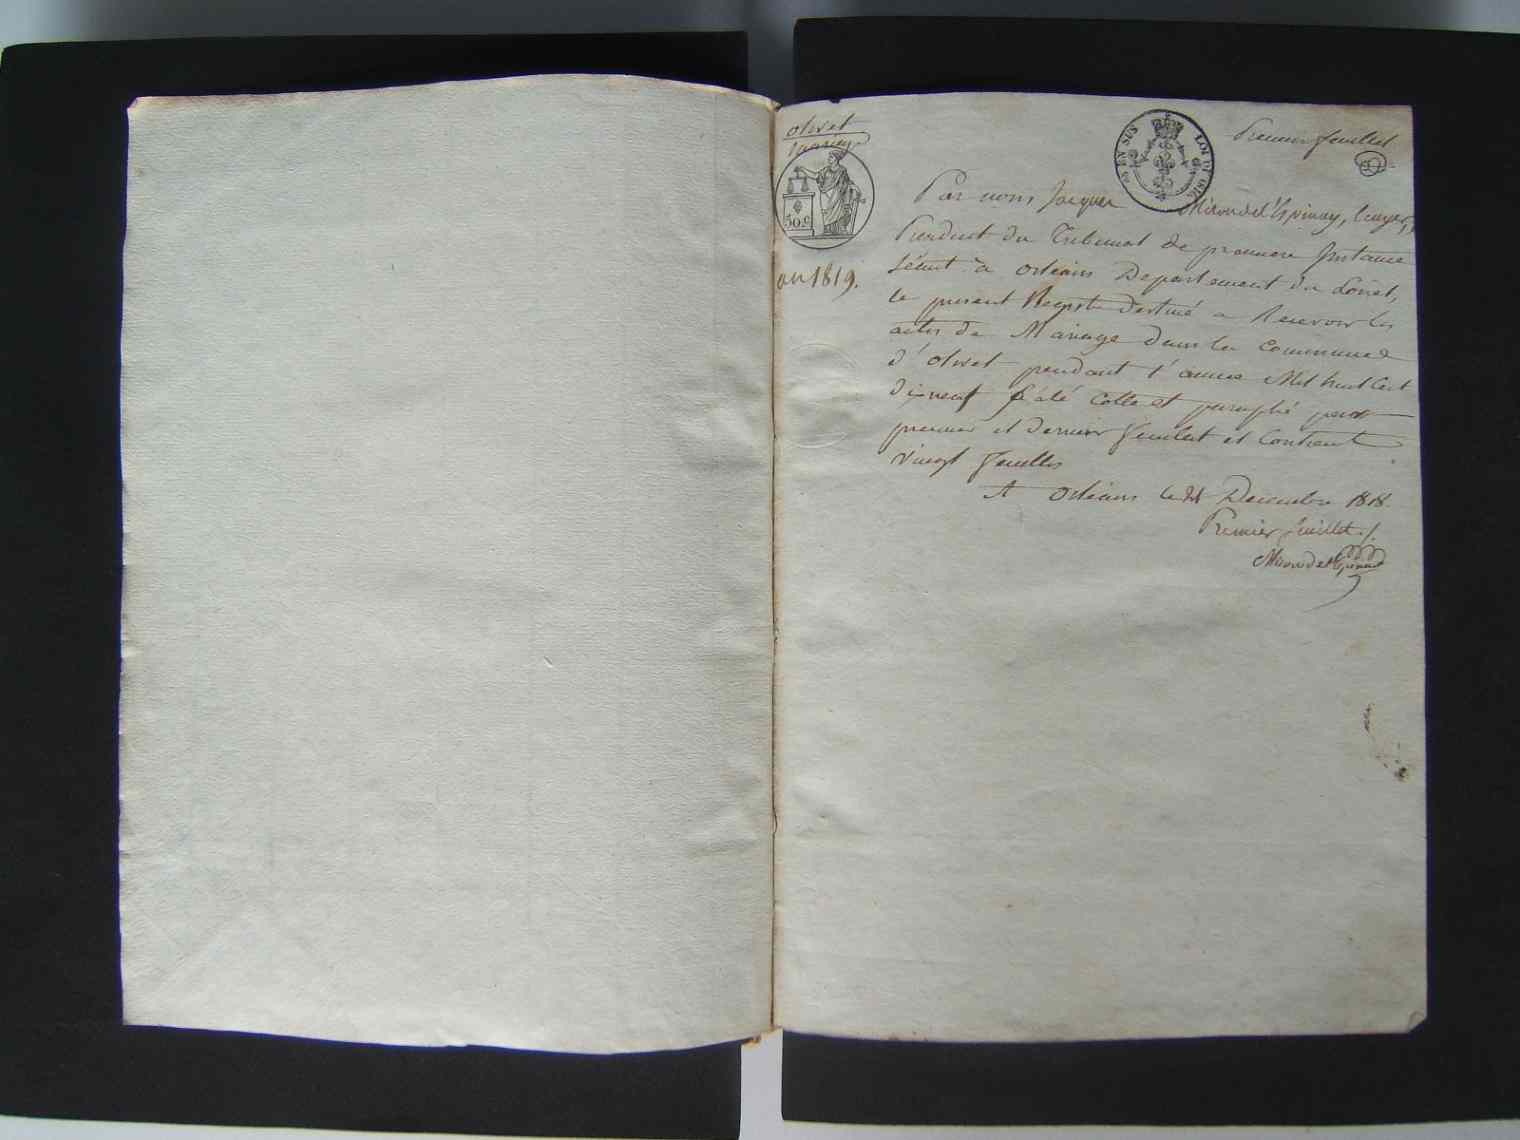 olivet
mariage
50 c
an 1819.
EN SUS
LOI DE 1816
Premier feuillet
Par nous Jacques Miron de l'Espinay, Ecuyer,
President du Tribunal de premiere Instance
séant à orleans Departement du Loiret,
le present Registre destiné a Recevoir les
actes de Mariage dans la Commune
d'olivet pendant l'année Mil huit Cent
dixneuf a été Cotté et paraphé par
premier et dernier feuillet et Contient
vingt feuilles
A Orleans le 21 Decembre 1818.
Premier feuillet ./.
Miron de l'Espinay